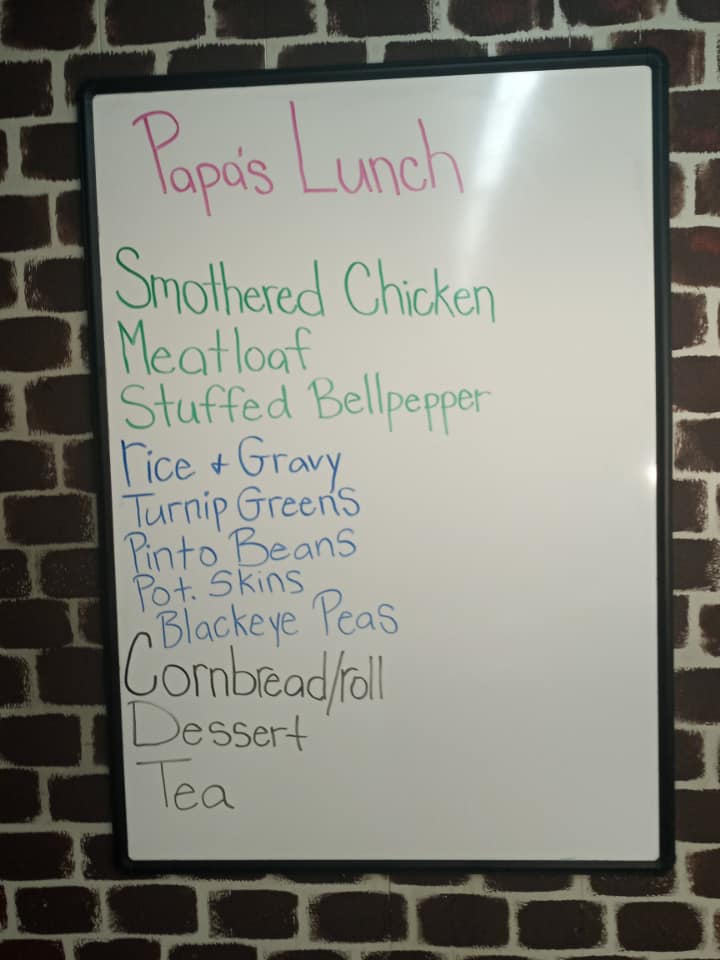 Papa's Lunch
Smothered Chicken
Meatloaf
Stuffed Bellpepper
rice + Gravy
Turnip Greens
Pinto Beans
Pot. Skins
Blackeye Peas
Cornbread/roll
Dessert
Tea